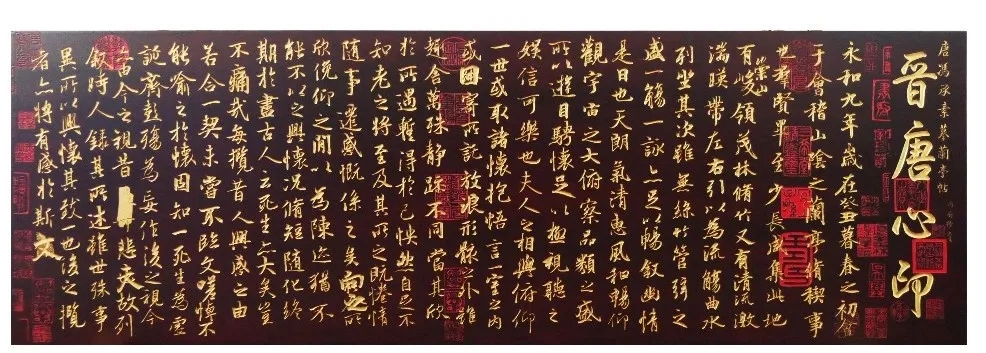 唐馮承素摹蘭亭帖
晉唐心印
永和九年歲在癸丑暮春之初會
于會稽山陰之蘭亭脩稧事
也群賢畢至少長咸集此地
有崇山峻領茂林脩竹又有清流激
湍暎帶左右引以為流觴曲水
列坐其次雖無絲竹管弦之
盛一觴一詠亦足以暢敘幽情
是日也天朗氣清惠風和暢仰
觀宇宙之大俯察品類之盛
所以遊目騁懷足以極視聽之
娛信可樂也夫人之相與俯仰
一世或取諸懷抱悟言一室之內
或因寄所託放浪形骸之外雖
趣舍萬殊靜躁不同當其欣
於所遇蹔得於己怏然自足不
知老之將至及其所之既惓情
隨事遷感慨係之矣向之所
欣俛仰之間以為陳迹猶不
能不以之興懷況脩短隨化終
期於盡古人云死生亦大矣豈
不痛哉每攬昔人興感之由
若合一契未嘗不臨文嗟悼不
能喻之於懷固知一死生為虛
誕齊彭殤為妄作後之視今
亦由今之視昔悲夫故列
敘時人錄其所述雖世殊事
異所以興懷其致一也後之攬
者亦將有感於斯文